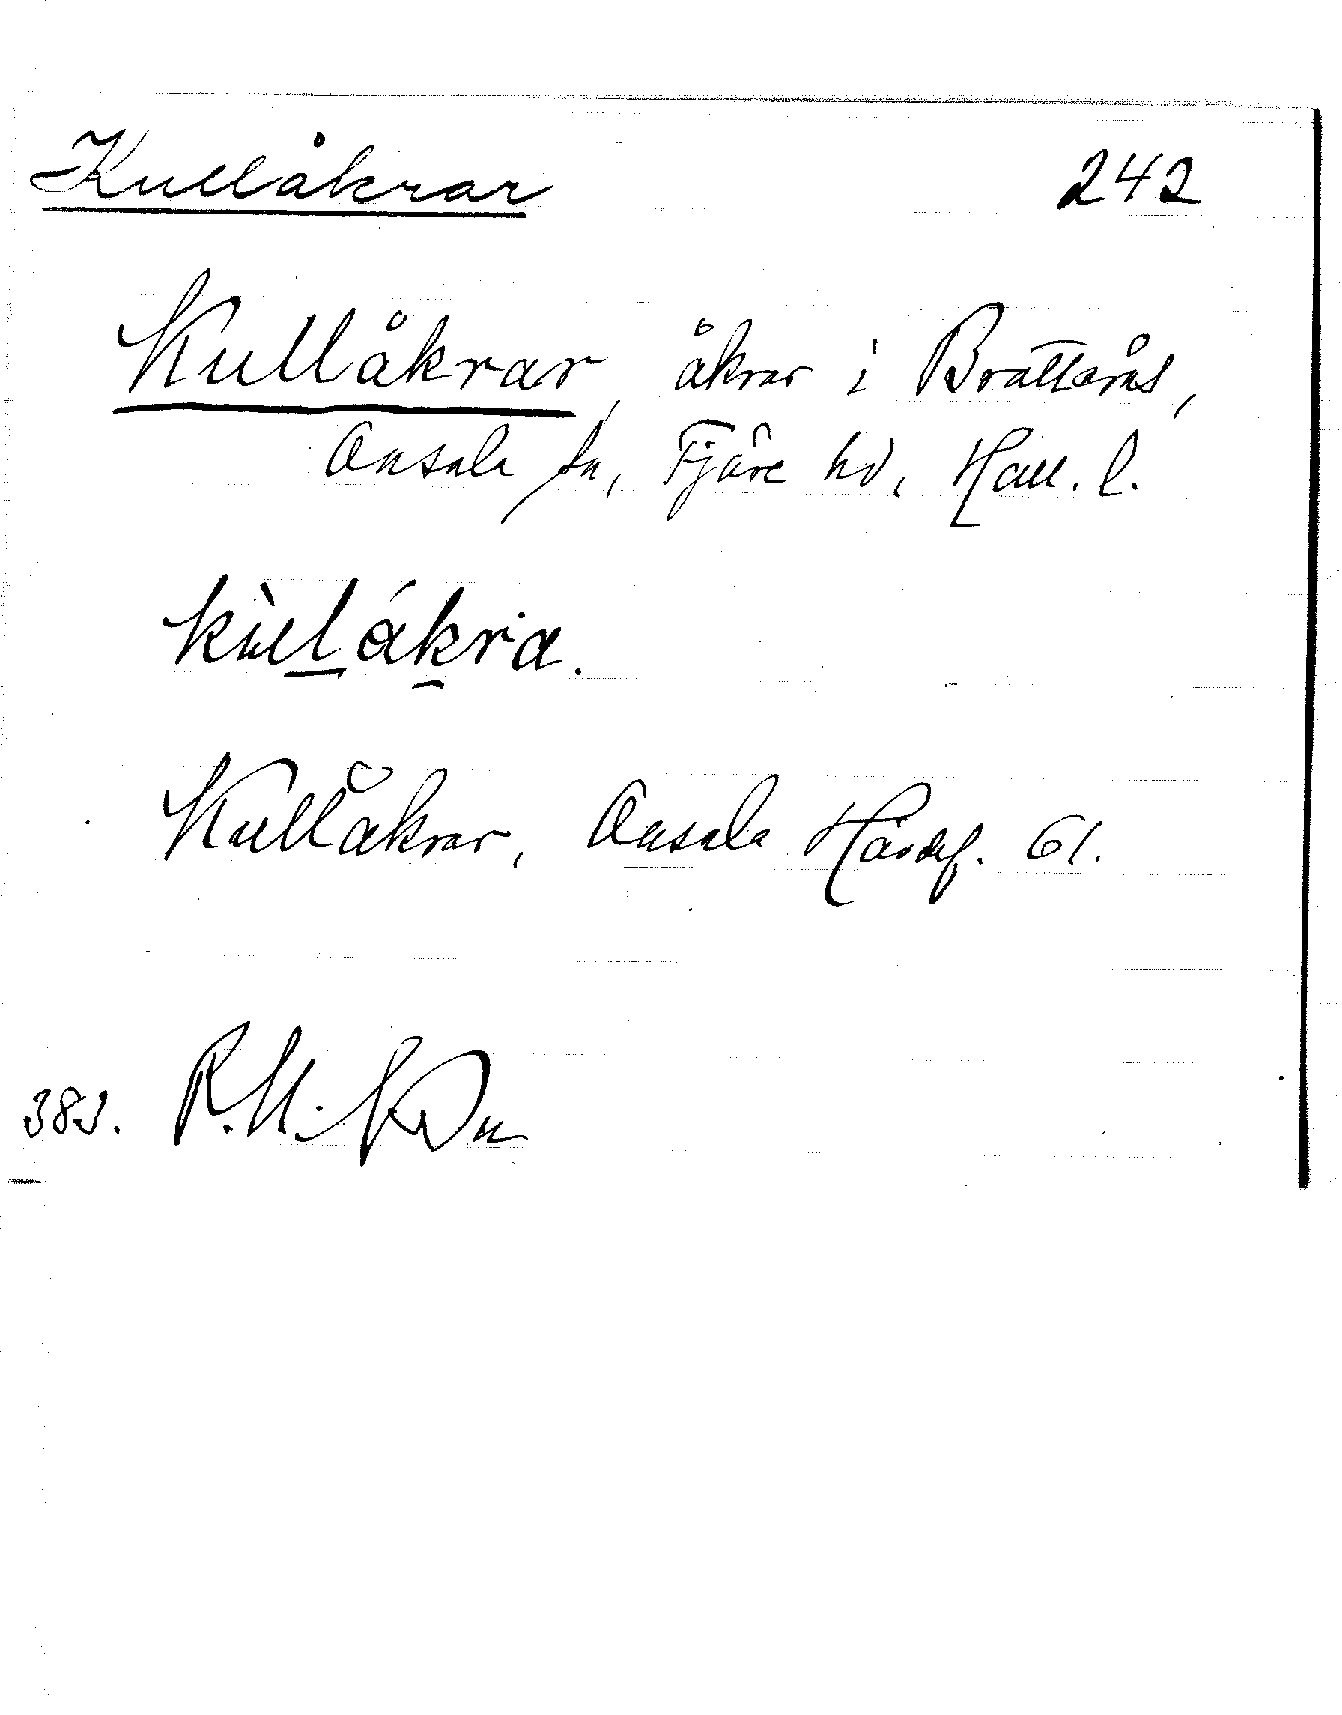 Kullåkrar 242
Kullåkrar, åkrar i Brattarås,
Onsala sn, Fjäre hd, Hall. l.
kùllákra.
Kullåkrar, Onsala Hävdef. 61.
383.